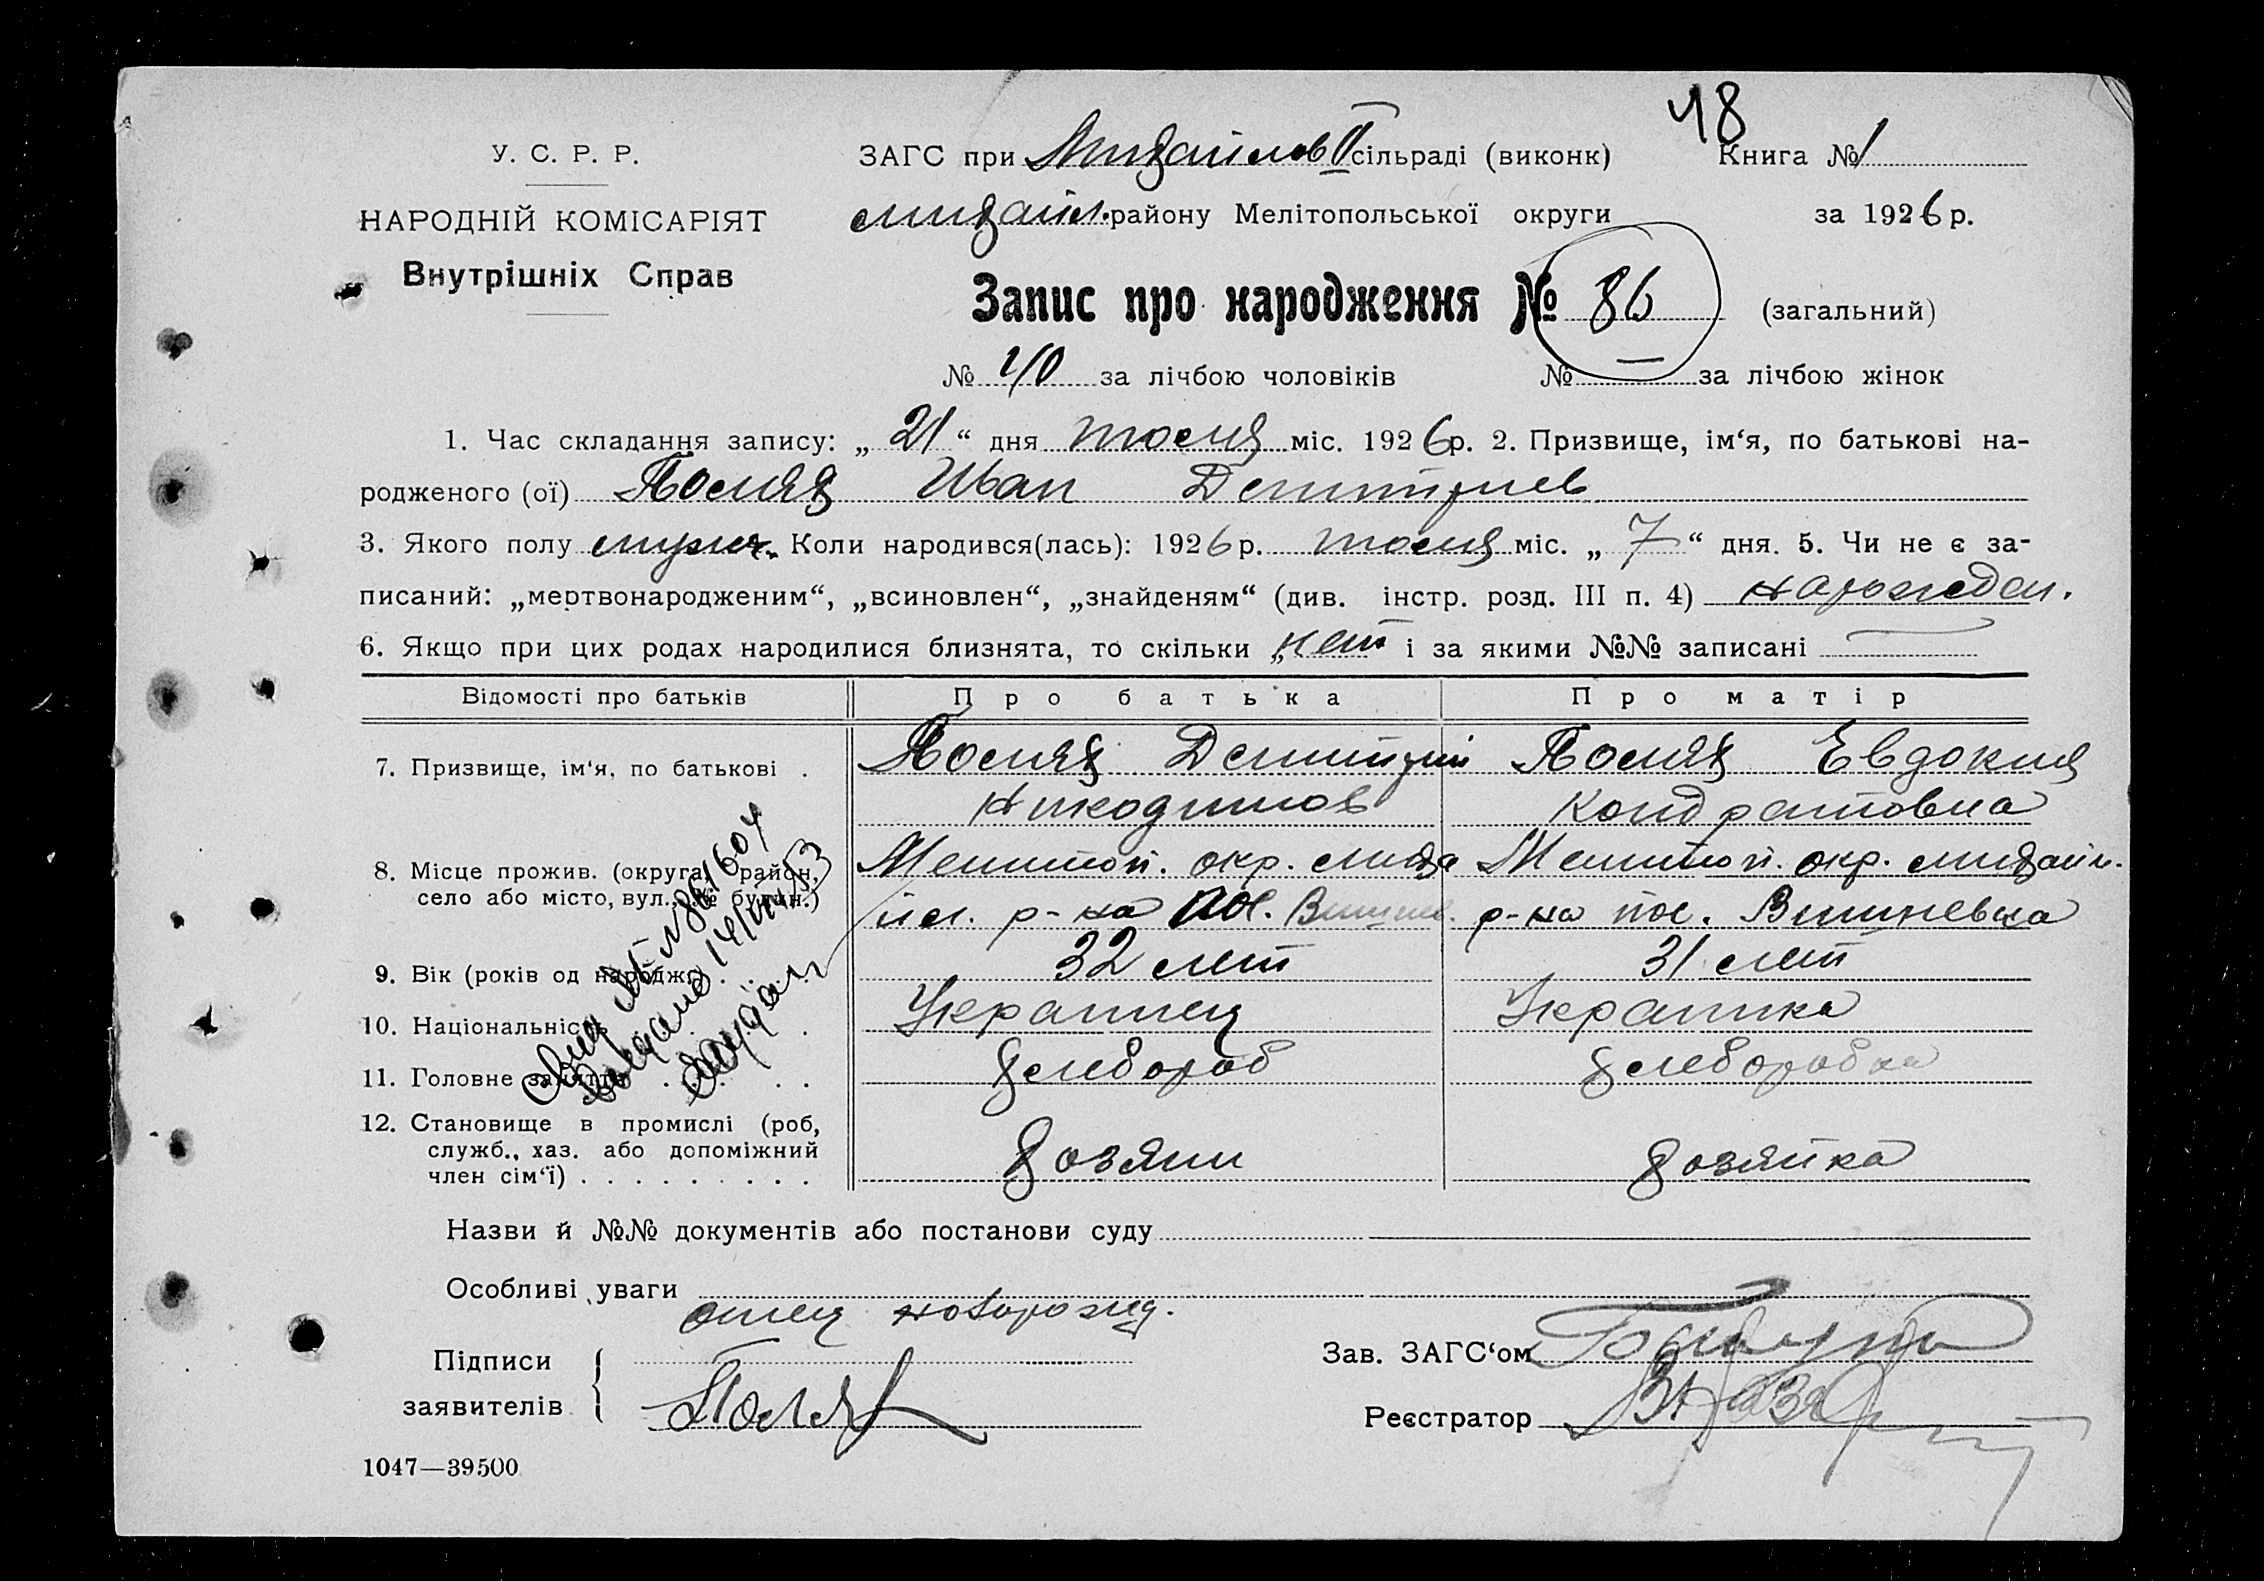 48
У. С. Р. Р.
НАРОДНІЙ КОМІСАРІЯТ
Внутрішніх Справ
ЗАГС при Михайлов II сільраді (виконк)
Книга № 1
михайл. району Мелітопольської округи
за 1926 р.
Запис про народження № 86 (загальний)
№ 40 за лічбою чоловіків № за лічбою жінок
1. Час складання запису: „ 21 “ дня июля міс. 1926 р. 2. Призвище, ім‘я, по батькові на-
родженого (ої) Поляя Иван Дмитриев
3. Якого полу мужч. Коли народився(лась): 1926 р. июля міс. „ 7 “ дня. 5. Чи не є за-
писаний: „мертвонародженим“, „всиновлен“, „знайденям“ (див. інстр. розд. III п. 4) нарожден.
6. Якщо при цих родах народилися близнята, то скільки „ нет і за якими №№ записані
Відомості про батьків Про батька Про матір
7. Призвище, ім‘я, по батькові . Поляя Дмитрий Поляя Евдокия
Никодимов Кондратовна
8. Місце прожив. (округа, район, Мелитоп. окр. миха Мелитоп. окр. михайл.
село або місто, вул., № будин.) йл. р-на пос. Вишнев. р-на пос. Вишневка
9. Вік (років од народж.) . . 32 лет 31 лет
10. Національність . . . Украинец Украинка
11. Головне заняття . . . . хлебороб хлеборобка
12. Становище в промислі (роб,
служб., хаз. або допоміжний
член сім‘ї) . . . . . . . . . хозяин хозяйка
Назви й №№ документів або постанови суду
Особливі уваги
отец новорожд.
Підписи
заявителів
Зав. ЗАГС‘ом
Реєстратор
1047—39500